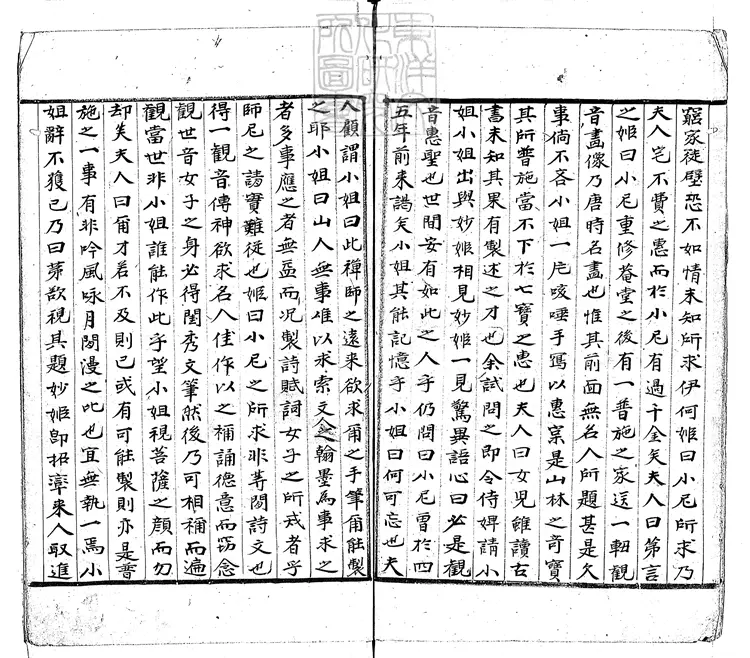 窮家徒壁恐不如情未知所求伊何姬曰小尼所求乃
夫人宅不費之惠而於小尼有過千金矣夫人曰第言
之姬曰小尼重修菴堂之後有一普施之家送一軸觀
音畵像乃唐時名畵也惟其前面無名人所題甚是欠
事倘不吝小姐一片咳唾手寫以惠窠是山林之奇寶
其所普施當不下於七寶之惠也夫人曰女児雖讀古
書未知其果有製述之才也余試問之即令侍婢請小
姐小姐出與妙姬相見妙姬一見驚異語心曰必是觀
音惠聖也世間安有如此之人乎仍問曰小尼曾於四
五年前来謁矣小姐其能記憶乎小姐曰何可忘也夫
人顧謂小姐曰此禪師之遠来欲求爾之手筆爾能製
之耶小姐曰山人無事雖以求索文翰墨為事求之
者多事應之者無益而况製詩賦詞女子之所戒者乎
師尼之請實難従也姬曰小尼之所求非等閒詩文也
得一觀音傳神欲求名人佳作以之補誦德意而窃念
觀世音女子之身必得閨秀文筆然後乃可相補而遍
觀當世非小姐誰能作此乎望小姐視菩薩之顔而勿
却矣夫人曰爾才若不及則已或有可能製則亦是普
施之一事有非吟風咏月閒漫之比也宜無執一焉小
姐辭不獲已乃曰第欲視其題妙姬即招来人取進